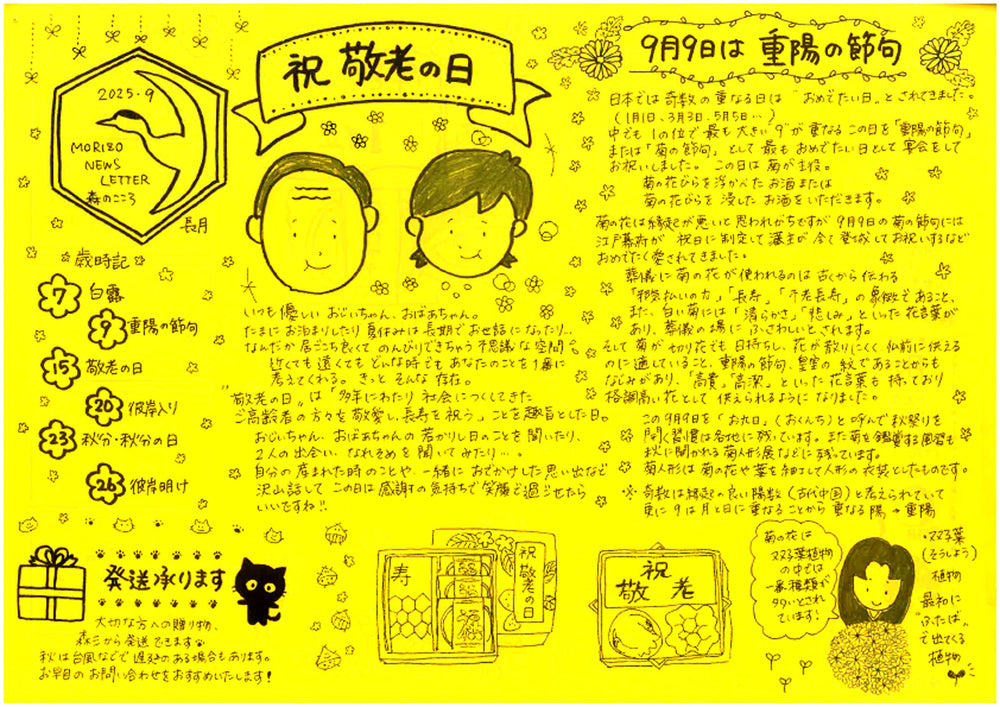 2025・9
MORIZO
NEWS
LETTER
森のこころ
長月
歳時記
7 白露
9 重陽の節句
15 敬老の日
20 彼岸入り
23 秋分・秋分の日
26 彼岸明け
祝 敬老の日
いつも優しい おじいちゃん、おばあちゃん。
たまにお泊まりしたり 夏休みは長期でお世話になったり…
なんだか居ごこち良くて のんびりできちゃう不思議な空間。
近くても遠くても どんな時でも あなたのことを1番に
考えてくれる。きっと そんな存在。
"敬老の日"は「多年にわたり 社会につくしてきた
ご高齢者の方々を敬愛し、長寿を祝う」ことを趣旨とした日。
おじいちゃん、おばあちゃんの若かりし日のことを聞いたり、
2人の出会い、なれそめを聞いてみたり…。
自分の産まれた時のことや、一緒におでかけした思い出など
沢山話して この日は感謝の気持ちで笑顔で過ごせたら
いいですね!!
9月9日は 重陽の節句
日本では奇数の重なる日は "おめでたい日"とされてきました。
(1月1日、3月3日、5月5日…)
中でも 1の位で最も大きい"9"が重なるこの日を「重陽の節句」
または「菊の節句」として 最も おめでたい日として宴会をして
お祝いしました。この日は菊が主役。
菊の花びらを浮かべたお酒または
菊の花びらを浸したお酒をいただきます。
菊の花は縁起が悪いと思われがちですが 9月9日の菊の節句には
江戸幕府が 祝日に制定して藩主が 登城してお祝いするなど
おめでたく愛されてきました。
葬儀に菊の花が使われるのは 古くから伝わる
「邪気払いの力」「長寿」「不老長寿」の象徴であること、
また、白い菊には「清らかさ」「悲しみ」といった花言葉が
あり、葬儀の場に ふさわしいとされます。
そして菊が切り花でも日持ちし、花が散りにくく仏前に供える
のに適していること、重陽の節句、皇室の紋であることからも
なじみがあり、「高貴」「高潔」といった花言葉も持っており
格調高い花として 供えられるようになりました。
この9月9日を「お九日」(おくんち)と呼んで秋祭りを
開く習慣は各地に残っています。また菊を鑑賞する風習も
秋に開かれる菊人形展などに残っています。
菊人形は菊の花や葉を細工して人形の衣装としたものです。
※ 奇数は縁起の良い陽数(古代中国)と考えられていて
更に9は月と日に重なることから 重なる陽→重陽
発送承ります
大切な方への贈り物、
森三から発送できます
秋は台風などで遅延のある場合もあります。
お早目のお問い合わせをおすすめいたします!
寿
祝 敬老の日
祝
敬老
菊の花は
双子葉植物
の中では
一番種類が
多いとされて
います!
・双子葉
(そうしよう)
植物
最初に
"ふたば"
で出てくる
植物